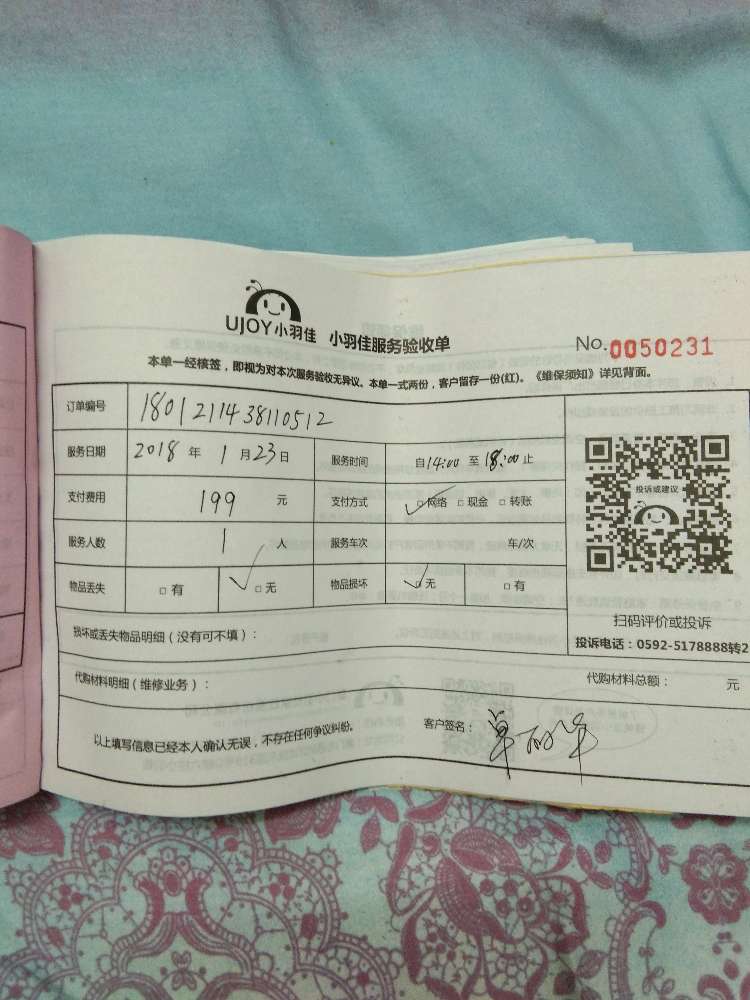 UJOY小羽佳 小羽佳服务验收单
No.0050231
本单一经核签，即视为对本次服务验收无异议。本单一式两份，客户留存一份(红)。《维保须知》详见背面。
订单编号 1801211438110512
服务日期 2018 年 1 月 23 日 服务时间 自14:00 至 18:00 止
支付费用 199 元 支付方式 □网络 □现金 □转账
服务人数 1 人 服务车次 车/次
物品丢失 □有 □无 物品损坏 □无 □有
投诉或建议
扫码评价或投诉
投诉电话：0592-5178888转2
损坏或丢失物品明细（没有可不填）：
代购材料明细（维修业务）： 代购材料总额： 元
以上填写信息已经本人确认无误，不存在任何争议纠纷。 客户签名：